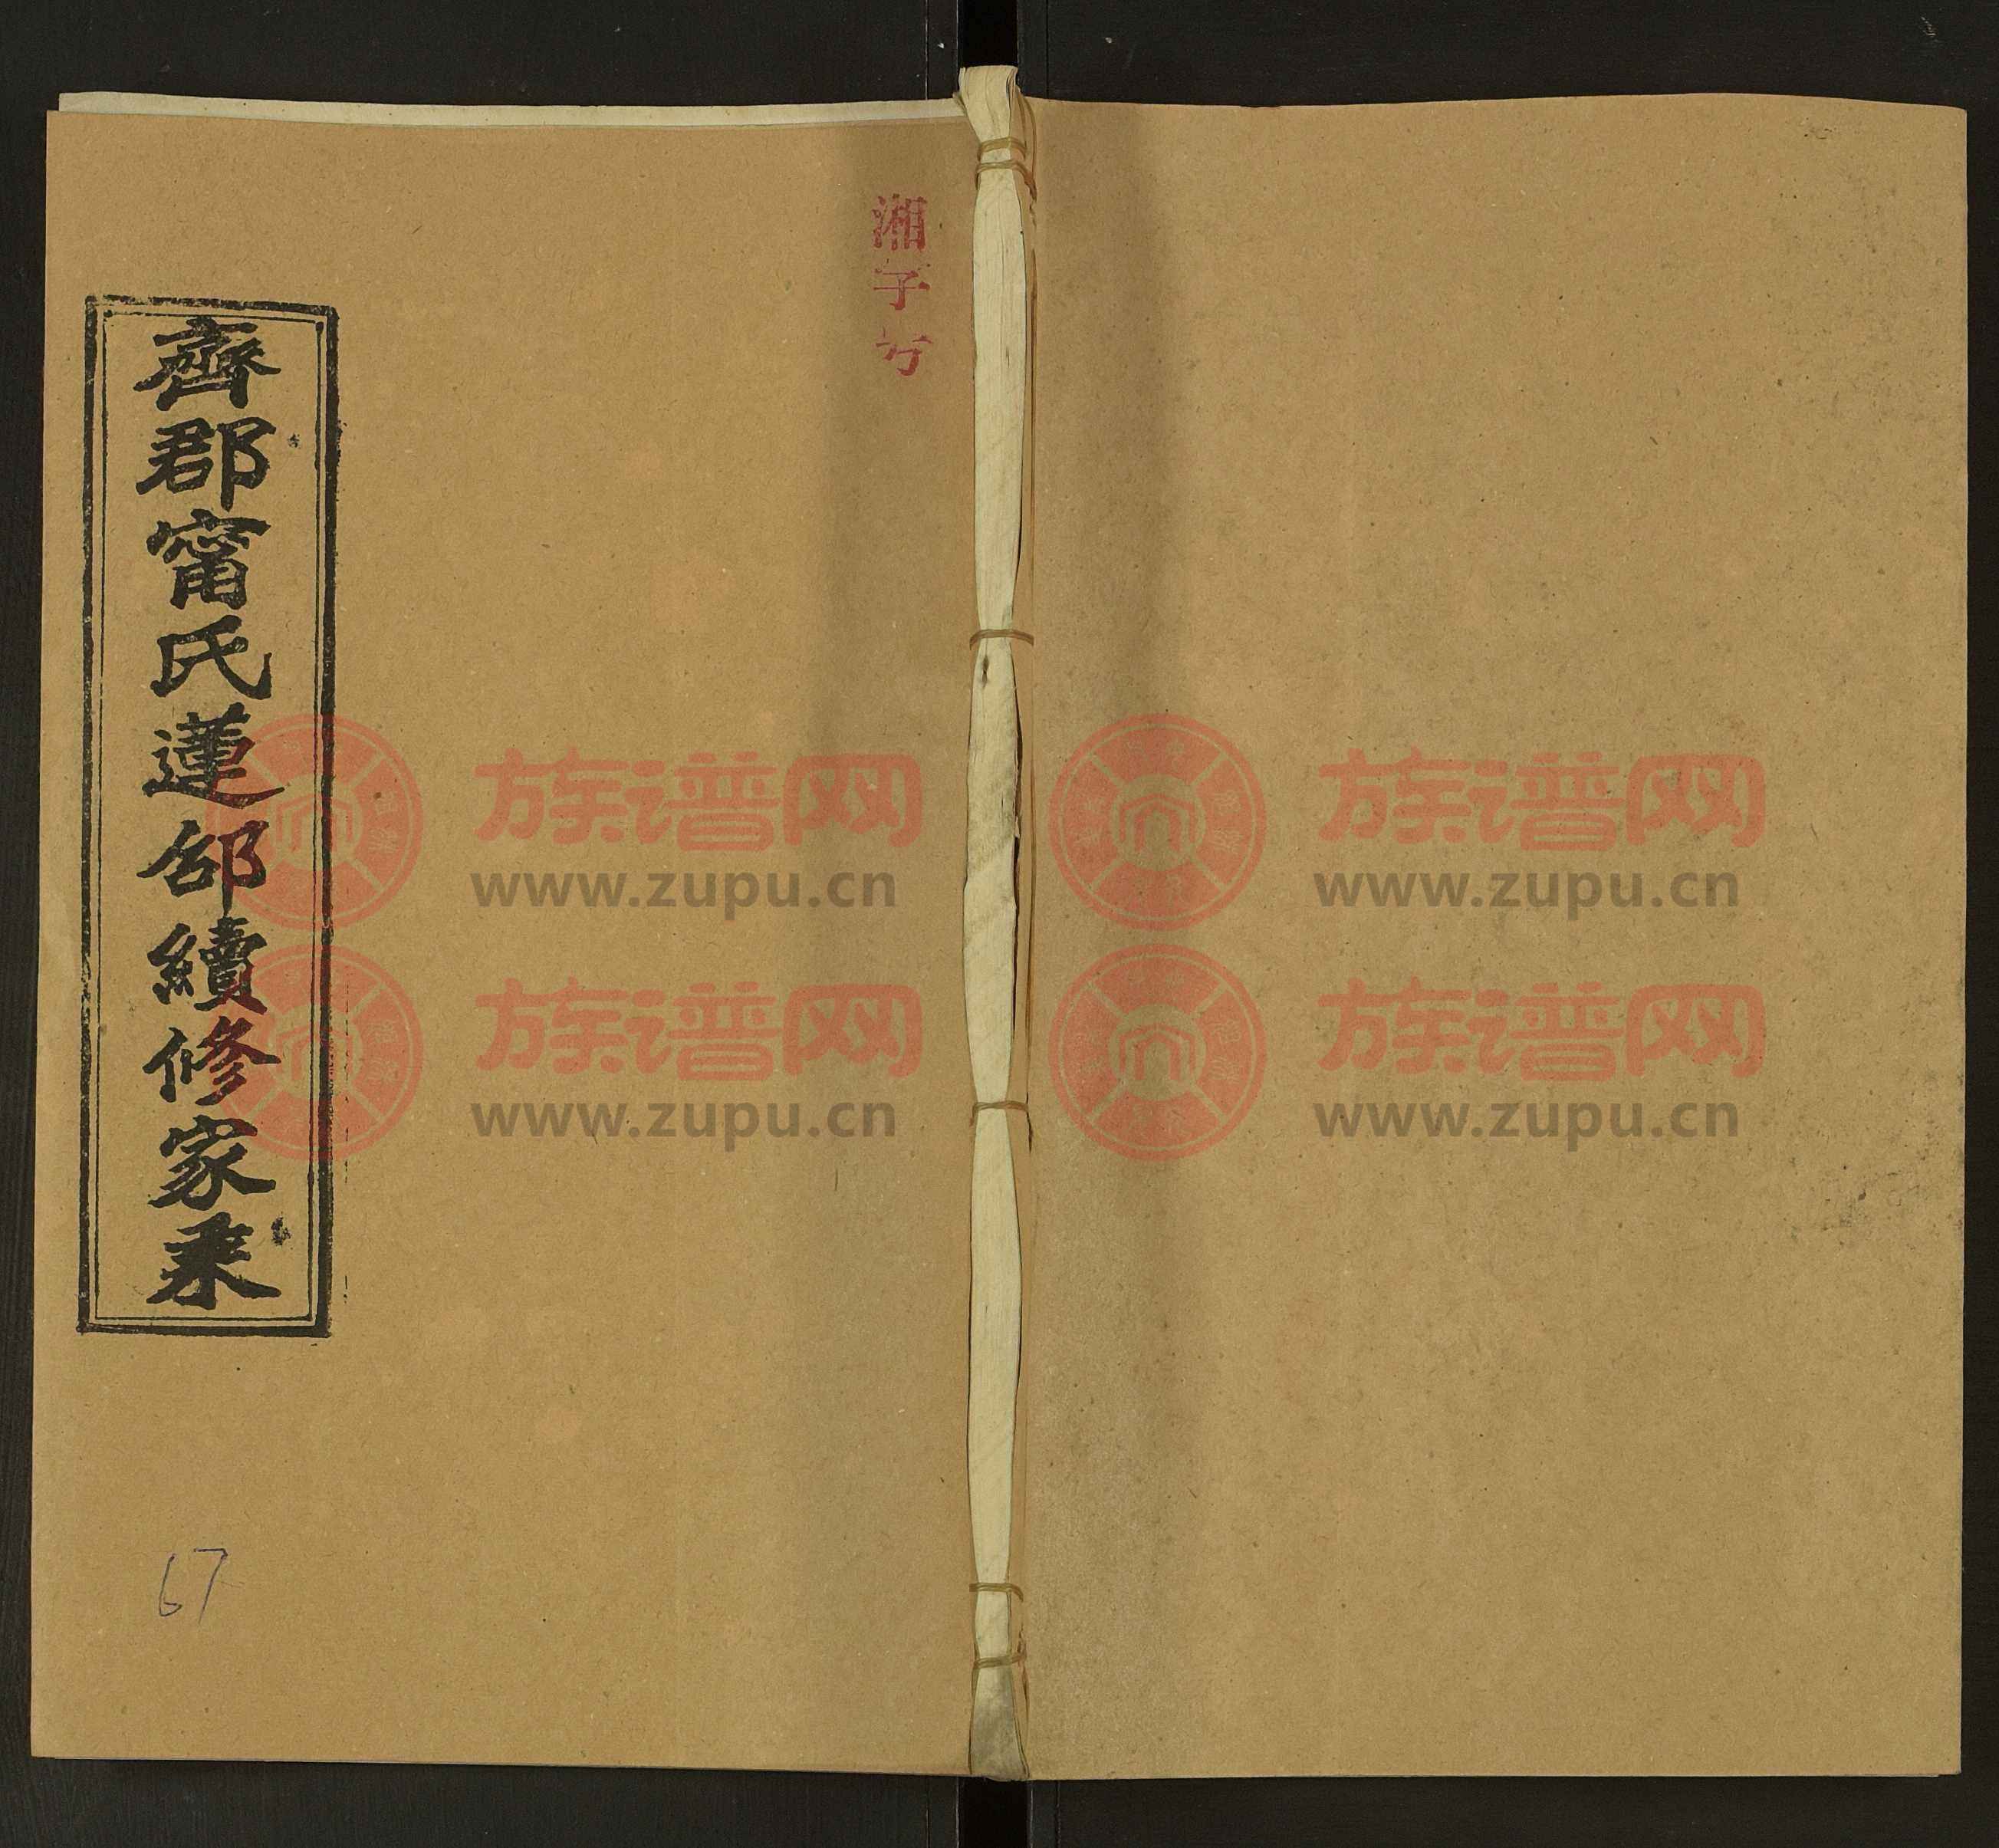 湘子兮
齊郡甯氏蓮邵續修家乘
67
族谱网
www.zupu.cn
族谱网
www.zupu.cn
族谱网
www.zupu.cn
族谱网
www.zupu.cn